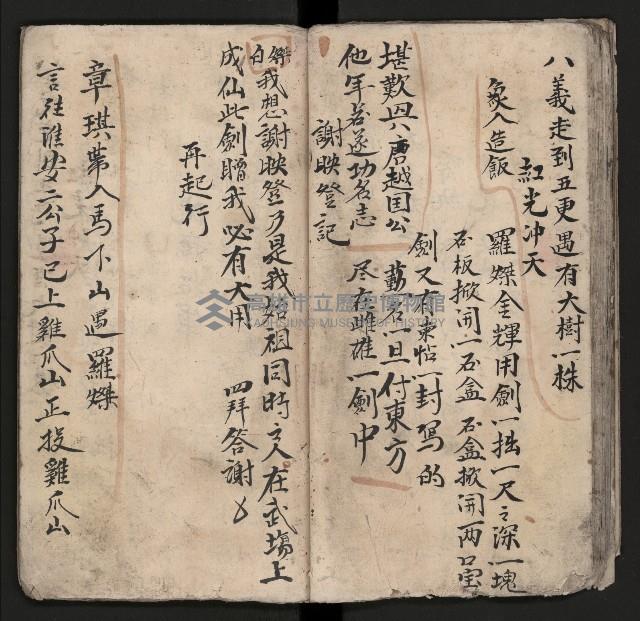 八義走到五更遇有大樹一株
紅光冲天
炱人造飯
羅燦金輝用劍一拙一尺之深一塊
石板掀開一石盒 石盒掀開两口宝
劍又有柬帖一封写的
堪歎四八唐越国公 勛名一旦付東方
他年若遂功名志 尽在雌雄一劍中
謝映登記
燦白 我想謝映登乃是我始祖同時之人在武塲上
成仙此劍贈我必有大用 四拜答謝
再起行
章琪带人馬下山遇羅燦
言往淮安二公子已上雞爪山正投雞爪山
高雄市立歷史博物館
KAOHSIUNG MUSEUM OF HISTORY